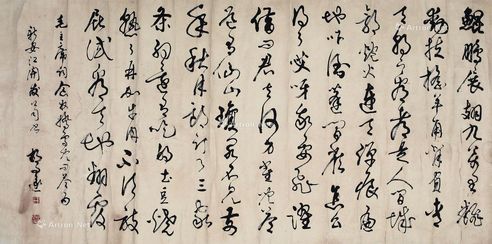 鲲鹏展翅九万里翻
动扶摇羊角背负青
天朝下看都是人间城
郭炮火连天弹痕遍
地吓倒蓬间雀怎么
得了哎呀我要飞跃
借问君去何方雀儿答
道有仙山琼阁不见前
年秋月朗订了三家
条约还有吃的土豆烧
熟了再加牛肉不须放
屁试看天地翻覆
毛主席词念奴娇鸟儿问答为
新安江开发公司